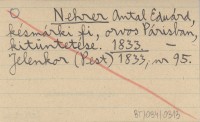 Nehrer Antal Eduárd,
késmárki fi, orvos Párisban,
kitüntetése. 1833. —
Jelenkor (Pest) 1833, nr 95.